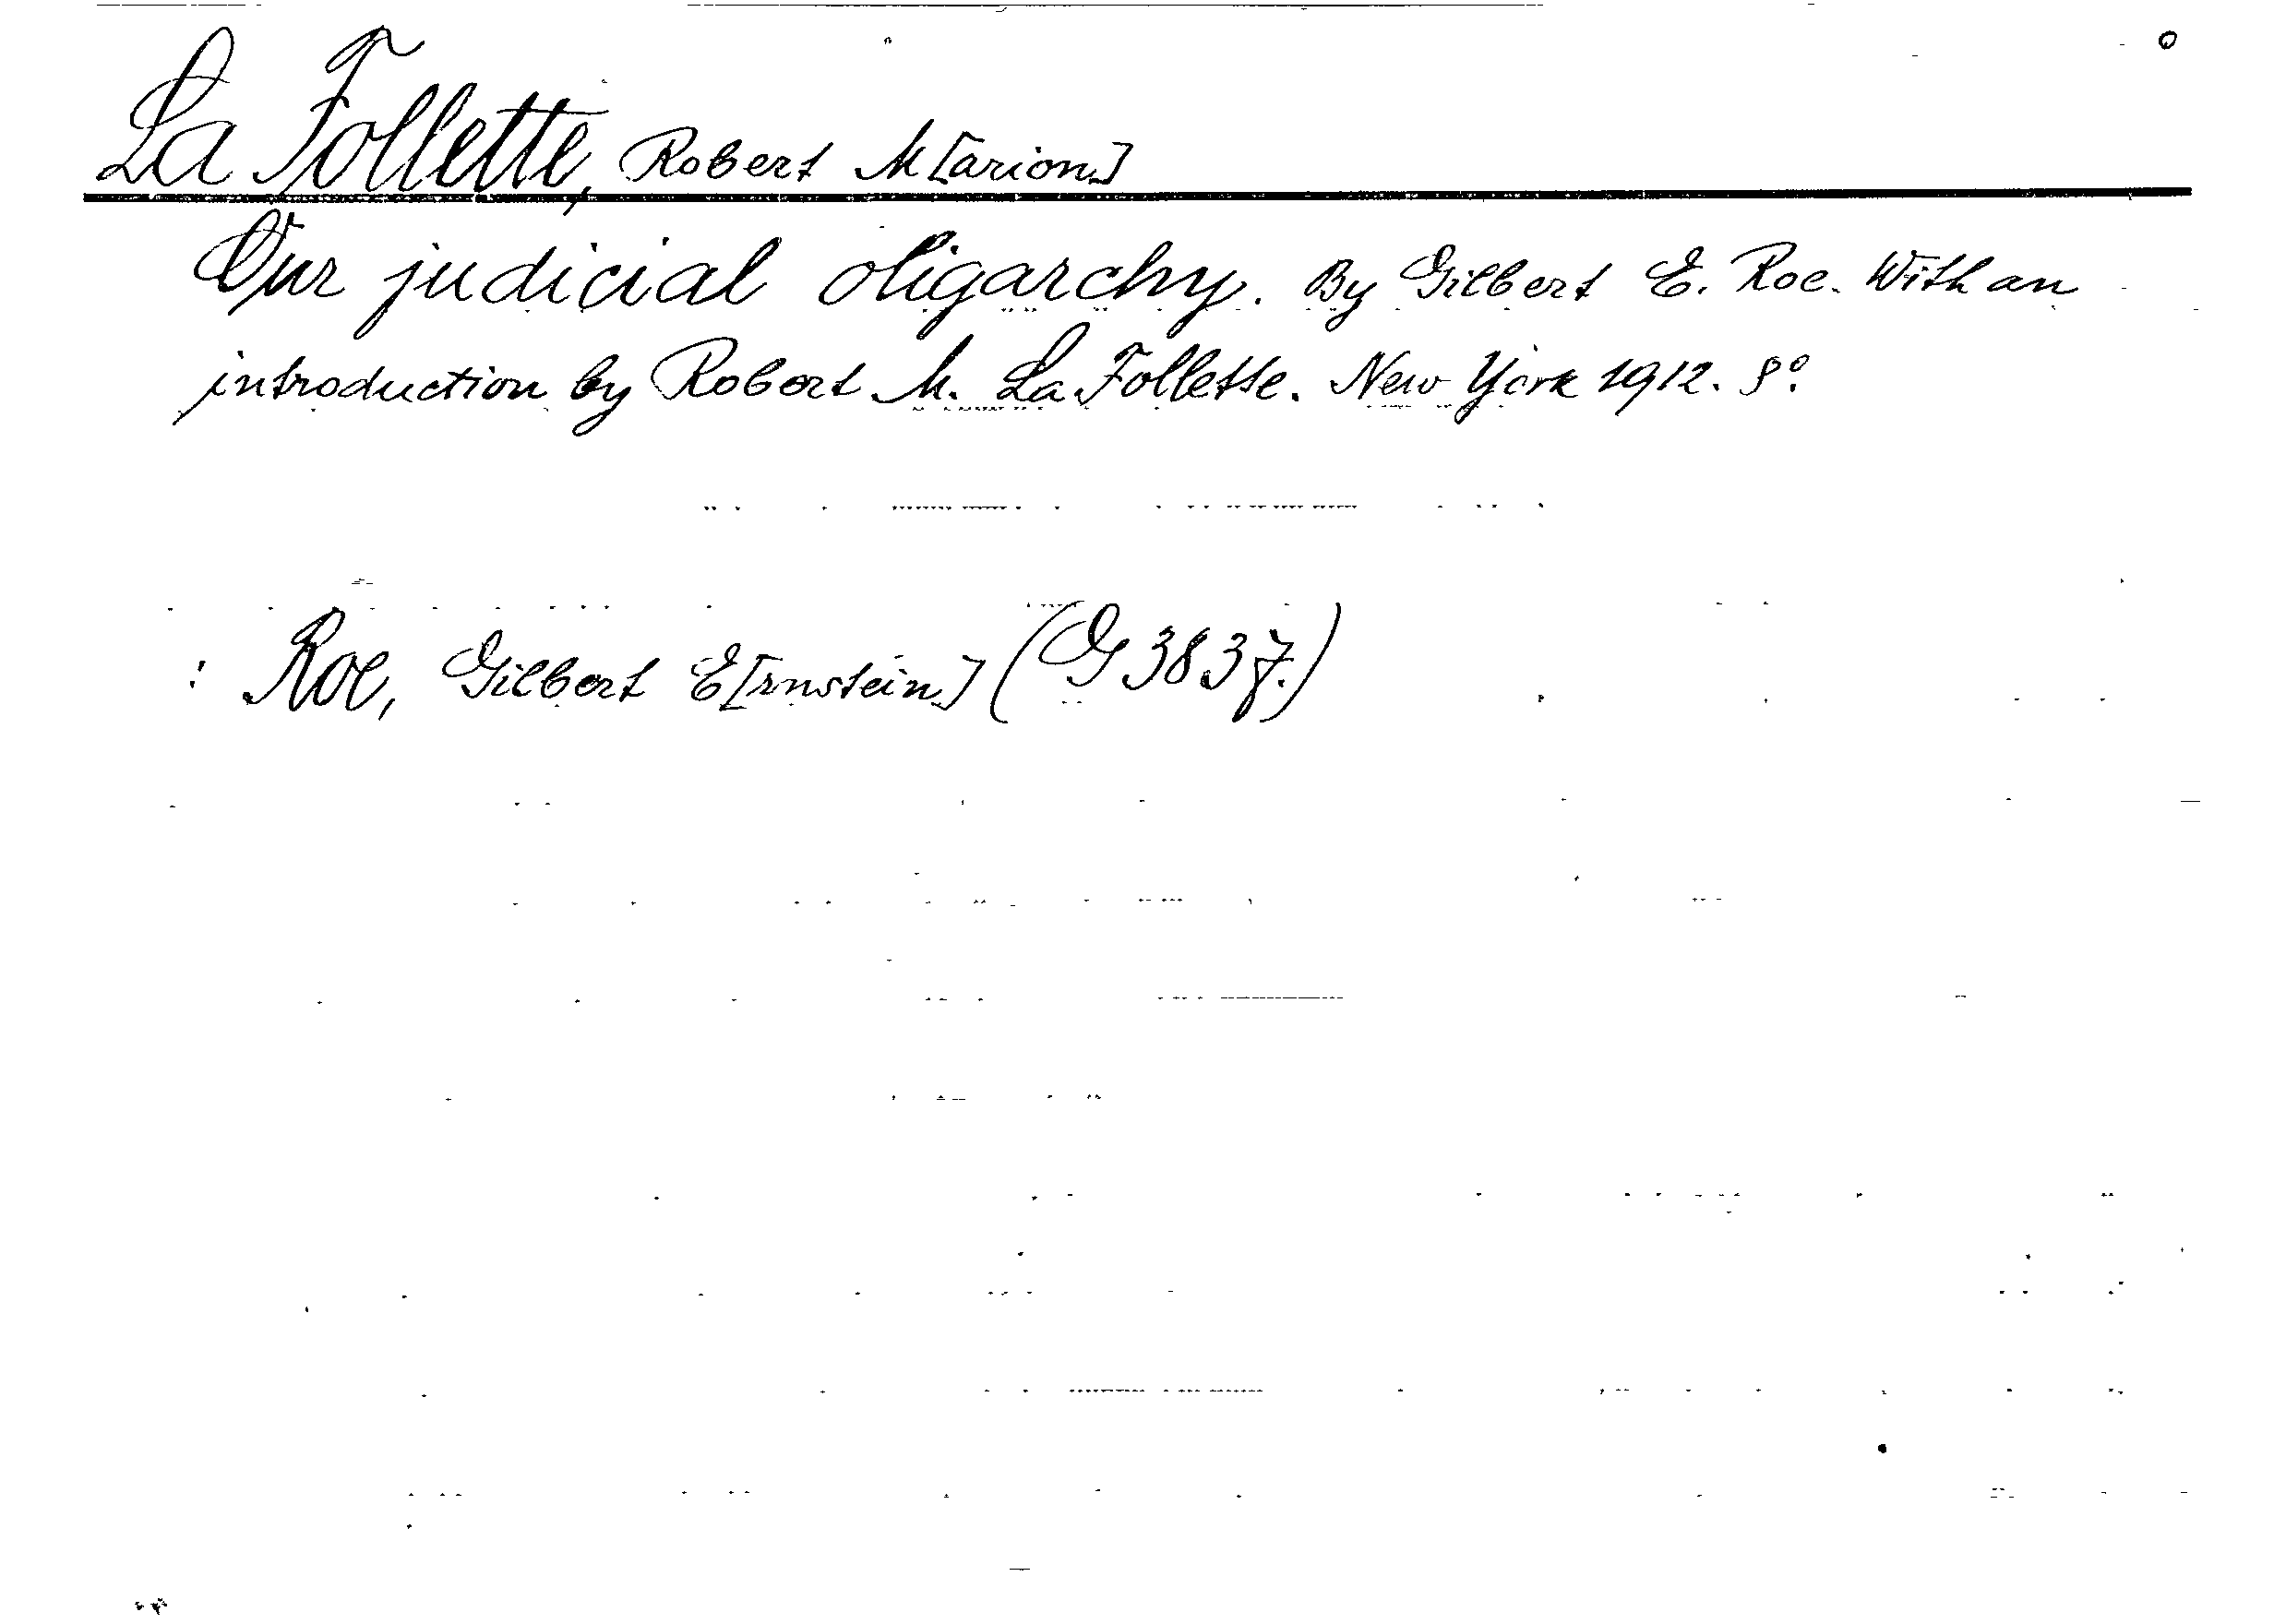 La Follette, Robert M[arion]
Our judicial oligarchy. By Gilbert E. Roe. With an
introduction by Robert M. La Follette. New York 1912. 8°.
: Roe, Gilbert E[rnstein] (G 3837.)